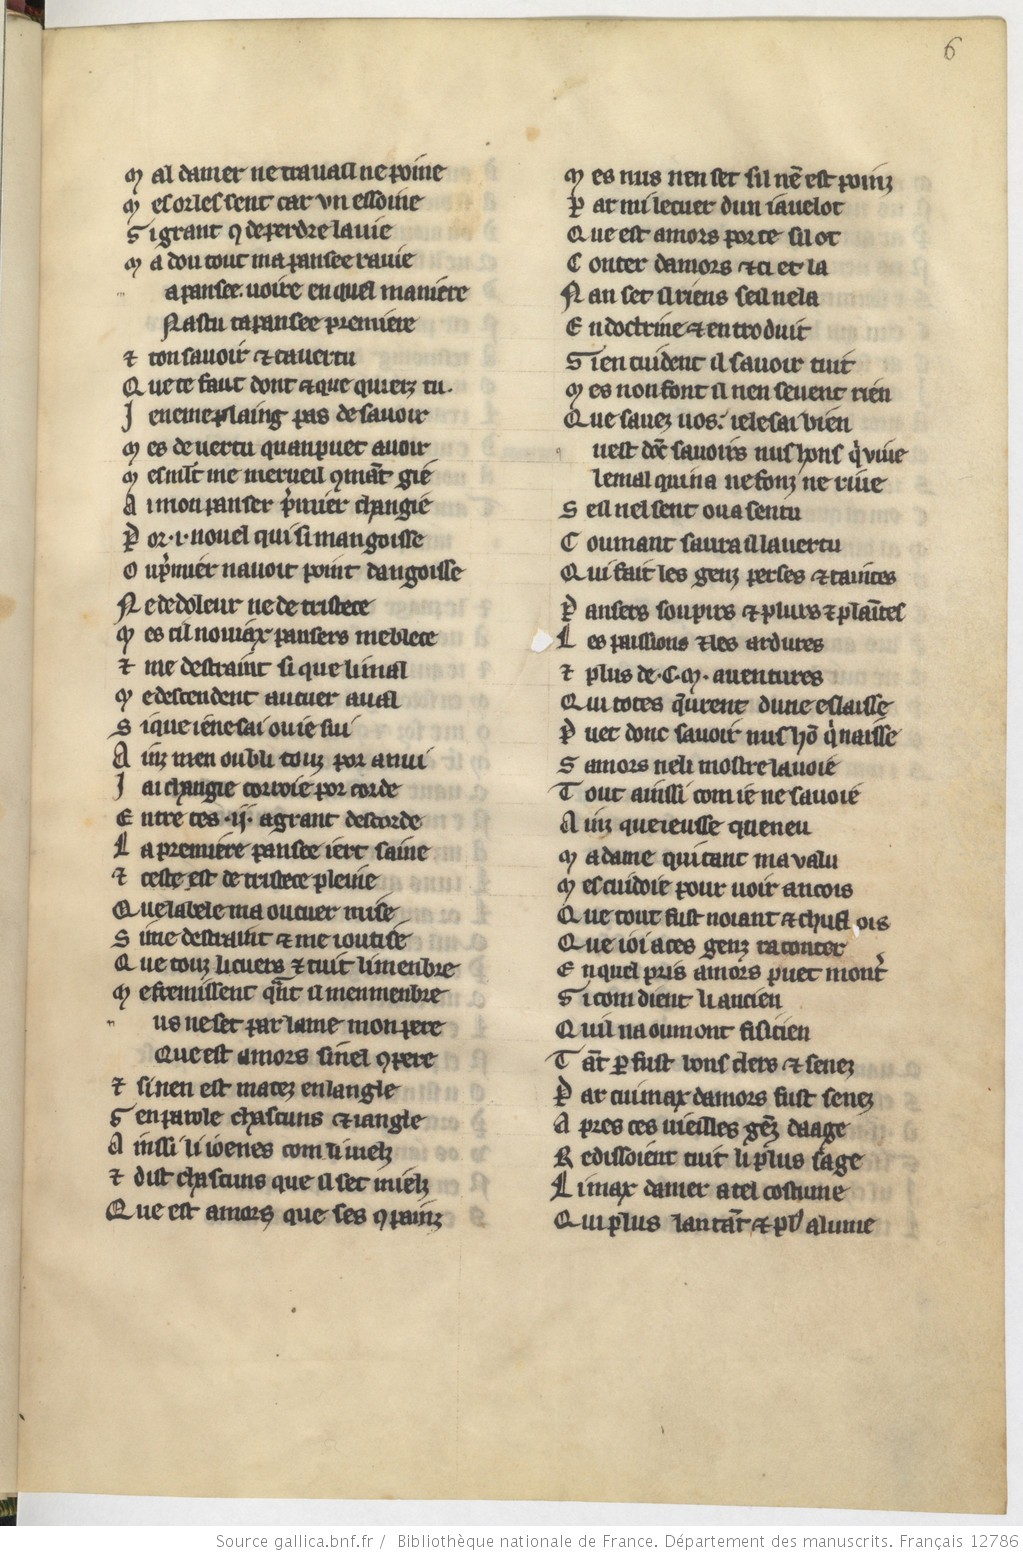 6
M al damer ne travail ne poine
M es or les sent car un essoine
S i grant 9 de perdre la vie
M a dou tout ma pansee ravie
a pansee. voire en quel maniere
N as tu ta pansee premiere
⁊ ton savoir ⁊ ta vertu
Q ue te faut dont ⁊ que quierz tu.
J e ne me plaing pas de savoir
M es de vertu quan puet avoir
M es mlt me merveil 9mãt gié
A i mon panser p̃mier changié
P or .i. novel qui si mangoisse
O u p̃mier navoit point dangoisse
N e de doleur ne de tristece
M es cil noviax pansers me blece
⁊ me destraint si que li mal
M e descendent au cuer aval
S i que ie ne sai ou ie sui
A inz men oubli touz por anui
J ai changié corroie por corde
E ntre ces .ij. a grant descorde
L a premiere pansee iert saine
⁊ ceste est de tristece pleine
Q ue la bele ma ou cuer mise
S i me destraint ⁊ me ioutise
Q ue touz li cuers ⁊ tuit li menbre
M e fremissent qñt il men menbre
us ne set par lame mon pere
Que est amors sinel 9pere
⁊ si nen est matez en langle
S en parole chascuns ⁊ iangle
A inssi li ioenes com li vielz
⁊ dist chascuns que il set mielz
Q ue est amors que ses 9painz
M es nus nen set sil nẽ est poinz
P ar mi le cuer dun iavelot
Q ue est amors por ce sil ot
C onter damors ⁊ ci et la
N an set il riens se il ne la
E n doctrine ⁊ en troduit
S i en cuident il savoir tuit
M es non font il nen sevent rien
Q ue savez vos. ie le sai bien
uest dõc savoirs nus hons q̃ vive
le mal qui na ne fonz ne rive
S e il nel sent ou a sentu
C oumant saura il la vertu
Q ui fait les genz perses ⁊ taintes
P ansers soupirs ⁊ plurs ⁊ plaĩtes
L es passions ⁊ les ardures
⁊ plus de .C.M. aventures
Q ui totes q̃urent dune eslaisse
P uet donc savoir nus hõ q̃ naisse
S amors ne li mostre la voie
T out ainssi com ie ne savoie
A inz que ieusse que neu
M a dame qui tant ma valu
M es cuidoie pour voir ancois
Q ue tout fust noiant ⁊ chuflois
Q ue ioi a ces genz raconter
E n quel pris amors puet mont̃
S i com dient li ancien
Q uil na ou mont fisicien
T ãt p fust bons clers ⁊ senez
P ar cui max damors fust senez
A pres ces vieilles gẽz daage
R edissoient tuit li plus sage
L i max damer a tel costume
Q ui plus lan tãt ⁊ pl' alume
Source gallica.bnf.fr / Bibliothèque nationale de France. Département des manuscrits. Français 12786